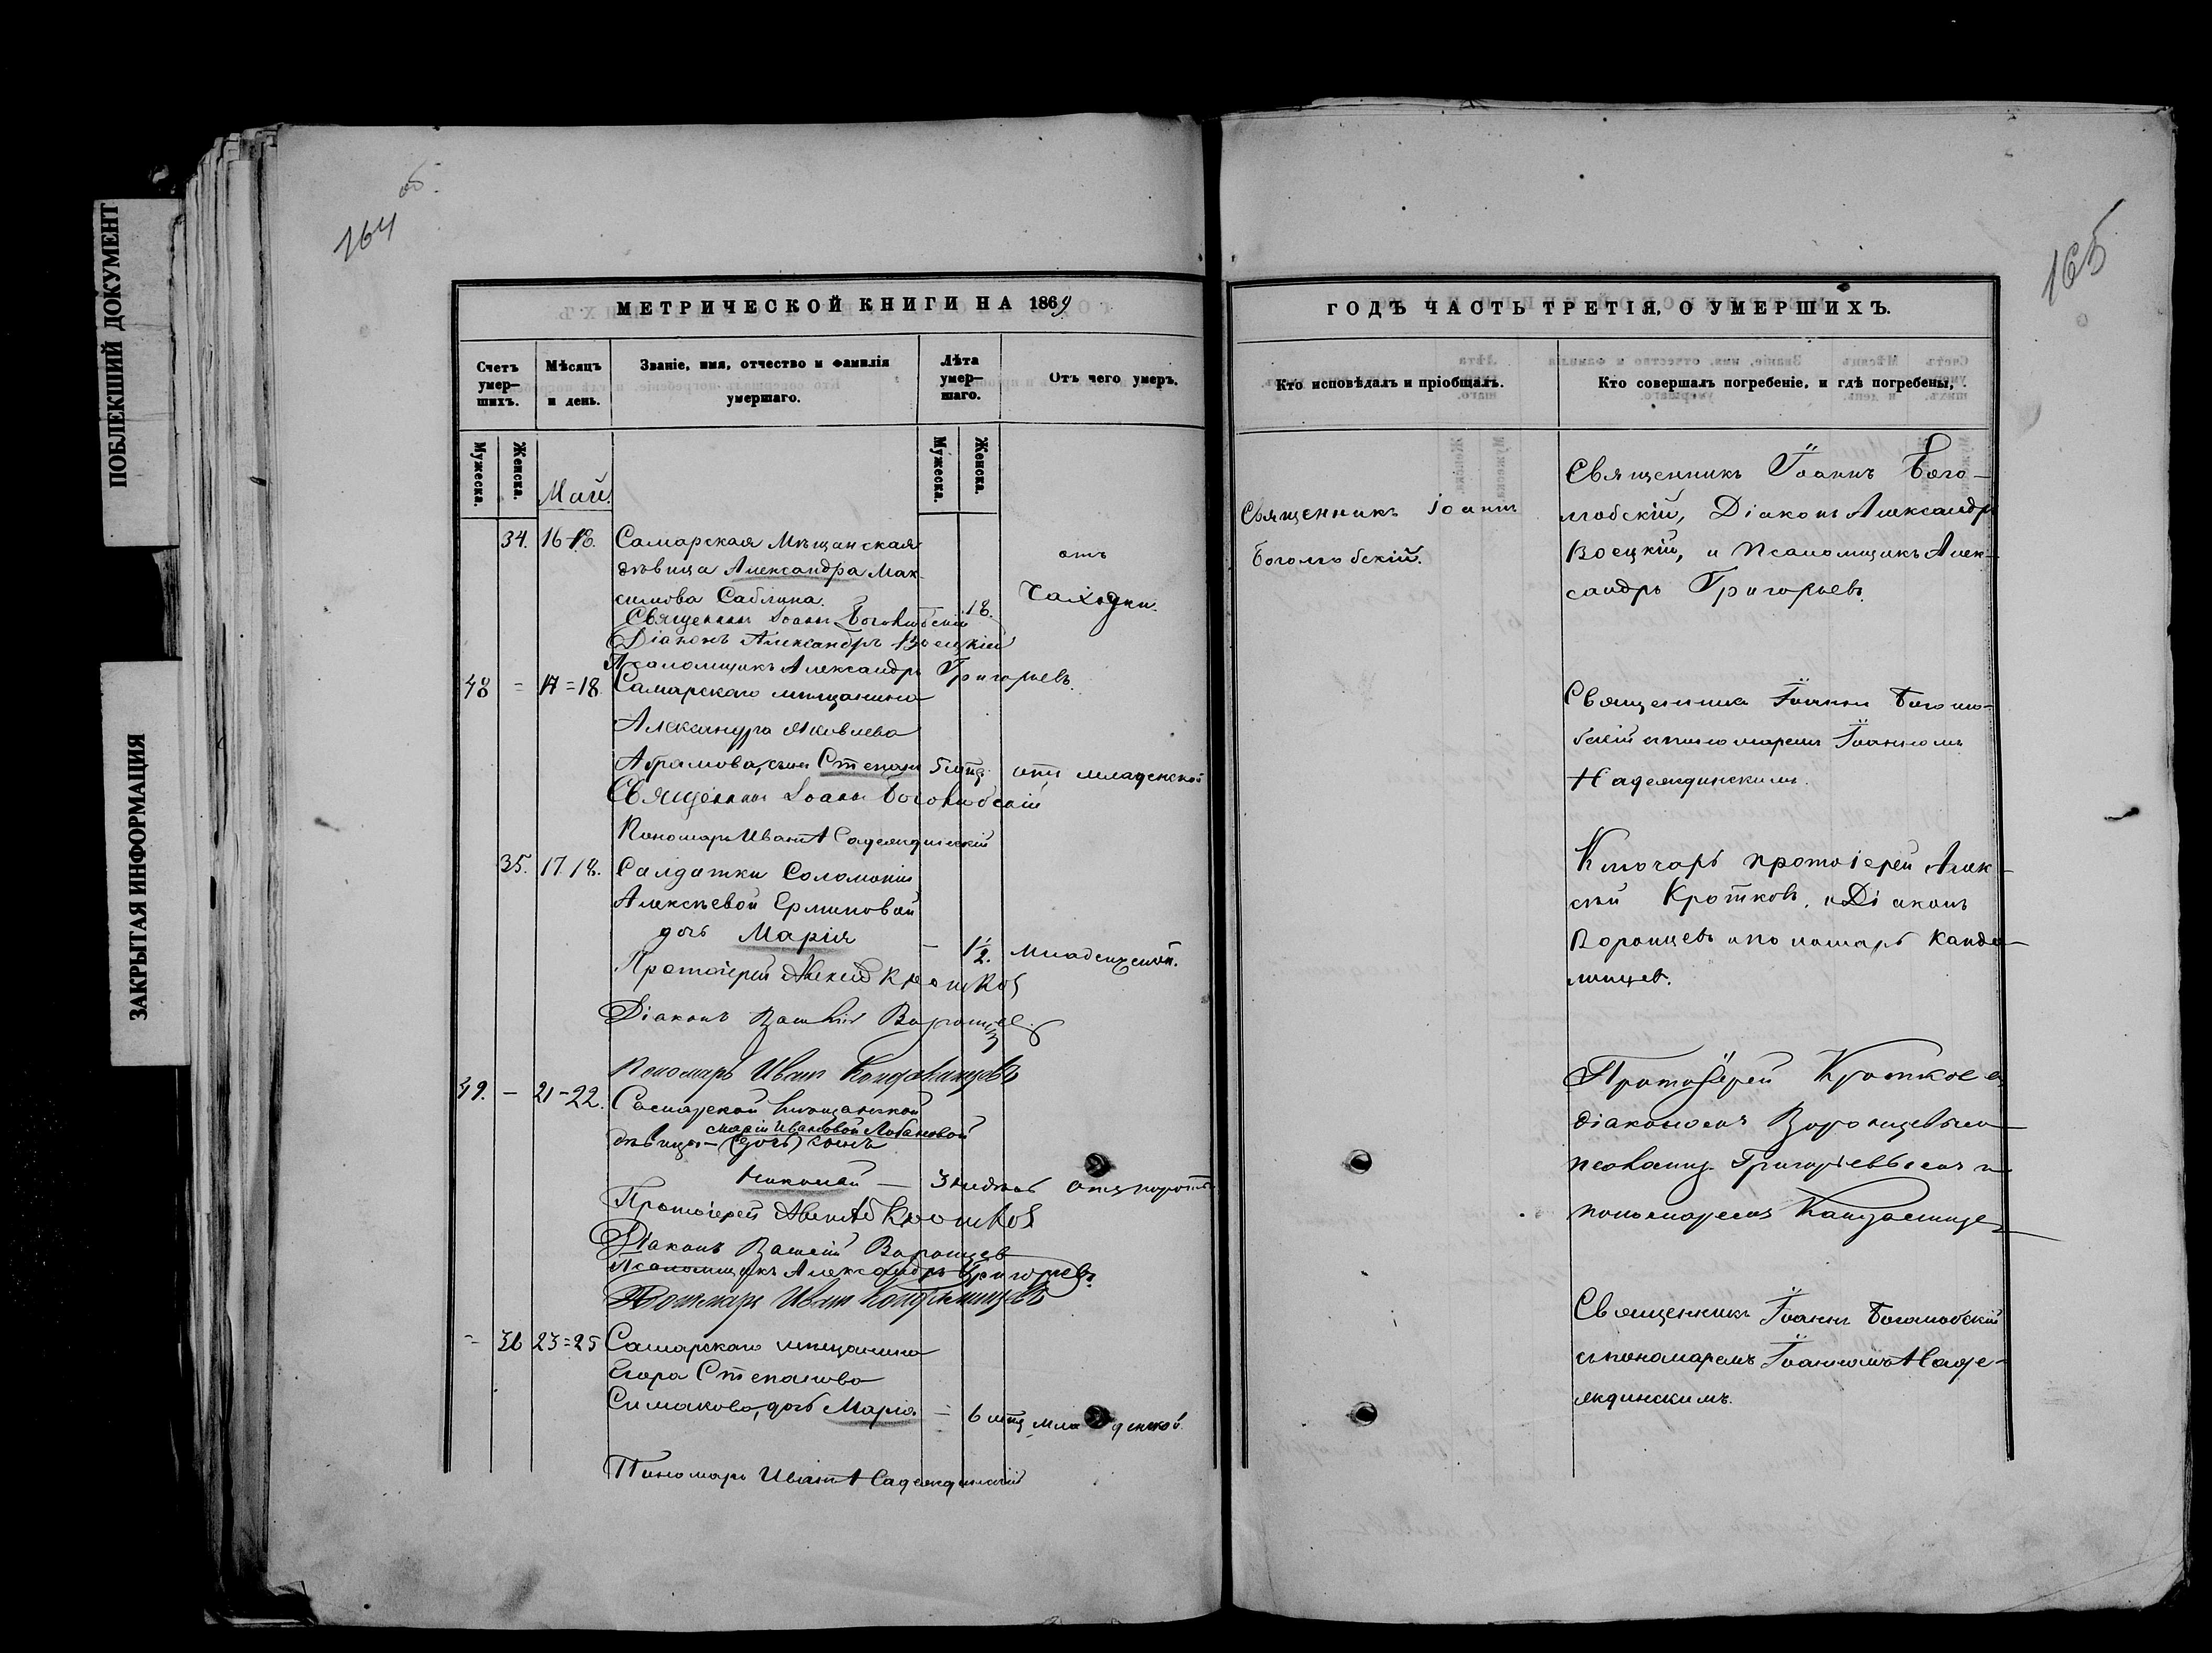 ПОБЛЕКШИЙ ДОКУМЕНТ
ЗАКРЫТАЯ ИНФОРМАЦИЯ
164 об.
МЕТРИЧЕСКОЙ КНИГИ НА 1869
Счетъ умер-шихъ.
Мѣсяцъ и день.
Званіе, имя, отчество и фамилія умершаго.
Лѣта умер-шаго.
Отъ чего умеръ.
Мужеска.
Женска.
Май.
Мужеска.
Женска.
34. 16-18. Самарская Мѣщанская
дѣвица Александра Мак-
симова Саблина. 18. отъ чахотки.
Священникъ Іоаннъ Боголюбскій
Діаконъ Александръ Воецкій
Псаломщикъ Александръ Григорьевъ.
48 = 17=18. Самарскаго мѣщанина
Александра Яковлева
Абрамова, сынъ Степанъ 5 мѣц. отъ младенской
Священникъ Іоаннъ Боголюбскій
Пономарь Иванъ Надеждинскій
35. 17.18. Салдатки Соломоніи
Алексѣевой Ермиловой
дочь Марія – 1½. младенческой.
Протоіерей Алексѣй Кротковъ
Діаконъ Воронцевъ
Пономарь Иванъ Кандалинцевъ
49. – 21-22. Самарской мѣщанской
Маріи Ивановой Лобановой
дѣвицы – (дочь) сынъ
Николай – 3 недѣль
Протоіерей Алексѣй Кротковъ
Діаконъ Воронцев
Псаломщикъ Александръ Григорьевъ.
Пономарь Иван Кандалинцевъ
= 36 23=25 Самарскаго мѣщанина
Егора Степанова
Симакова, дочь Марія – 6 мѣц. младенской.
Пономарь Иванъ Надеждинскій
165
ГОДЪ ЧАСТЬ ТРЕТІЯ, О УМЕРШИХЪ.
Кто исповѣдалъ и пріобщалъ.
Кто совершалъ погребеніе, и гдѣ погребены,
Священникъ Іоаннъ
Боголюбскій.
Священникъ Іоаннъ Бого-
любскій, Діаконъ Александръ
Воецкій, и Псаломщикъ Алек-
сандръ Григорьевъ.
Священникъ Іоаннъ Боголю-
бскій с пономаремъ Іоанномъ
Надеждинскимъ.
Ключарь протоіерей Алек-
сѣй Кротковъ, и Діаконъ
Воронцевъ и пономарьКанда-
линцев.
Протоіерей Кротков с
діакономъ Воронцевымъ
псаломщ. Григорьевымъ и
пономаремъ
Священникъ Іоаннъ Боголюбскій
с пономаремъ Іоанномъ Наде-
ждинскимъ.